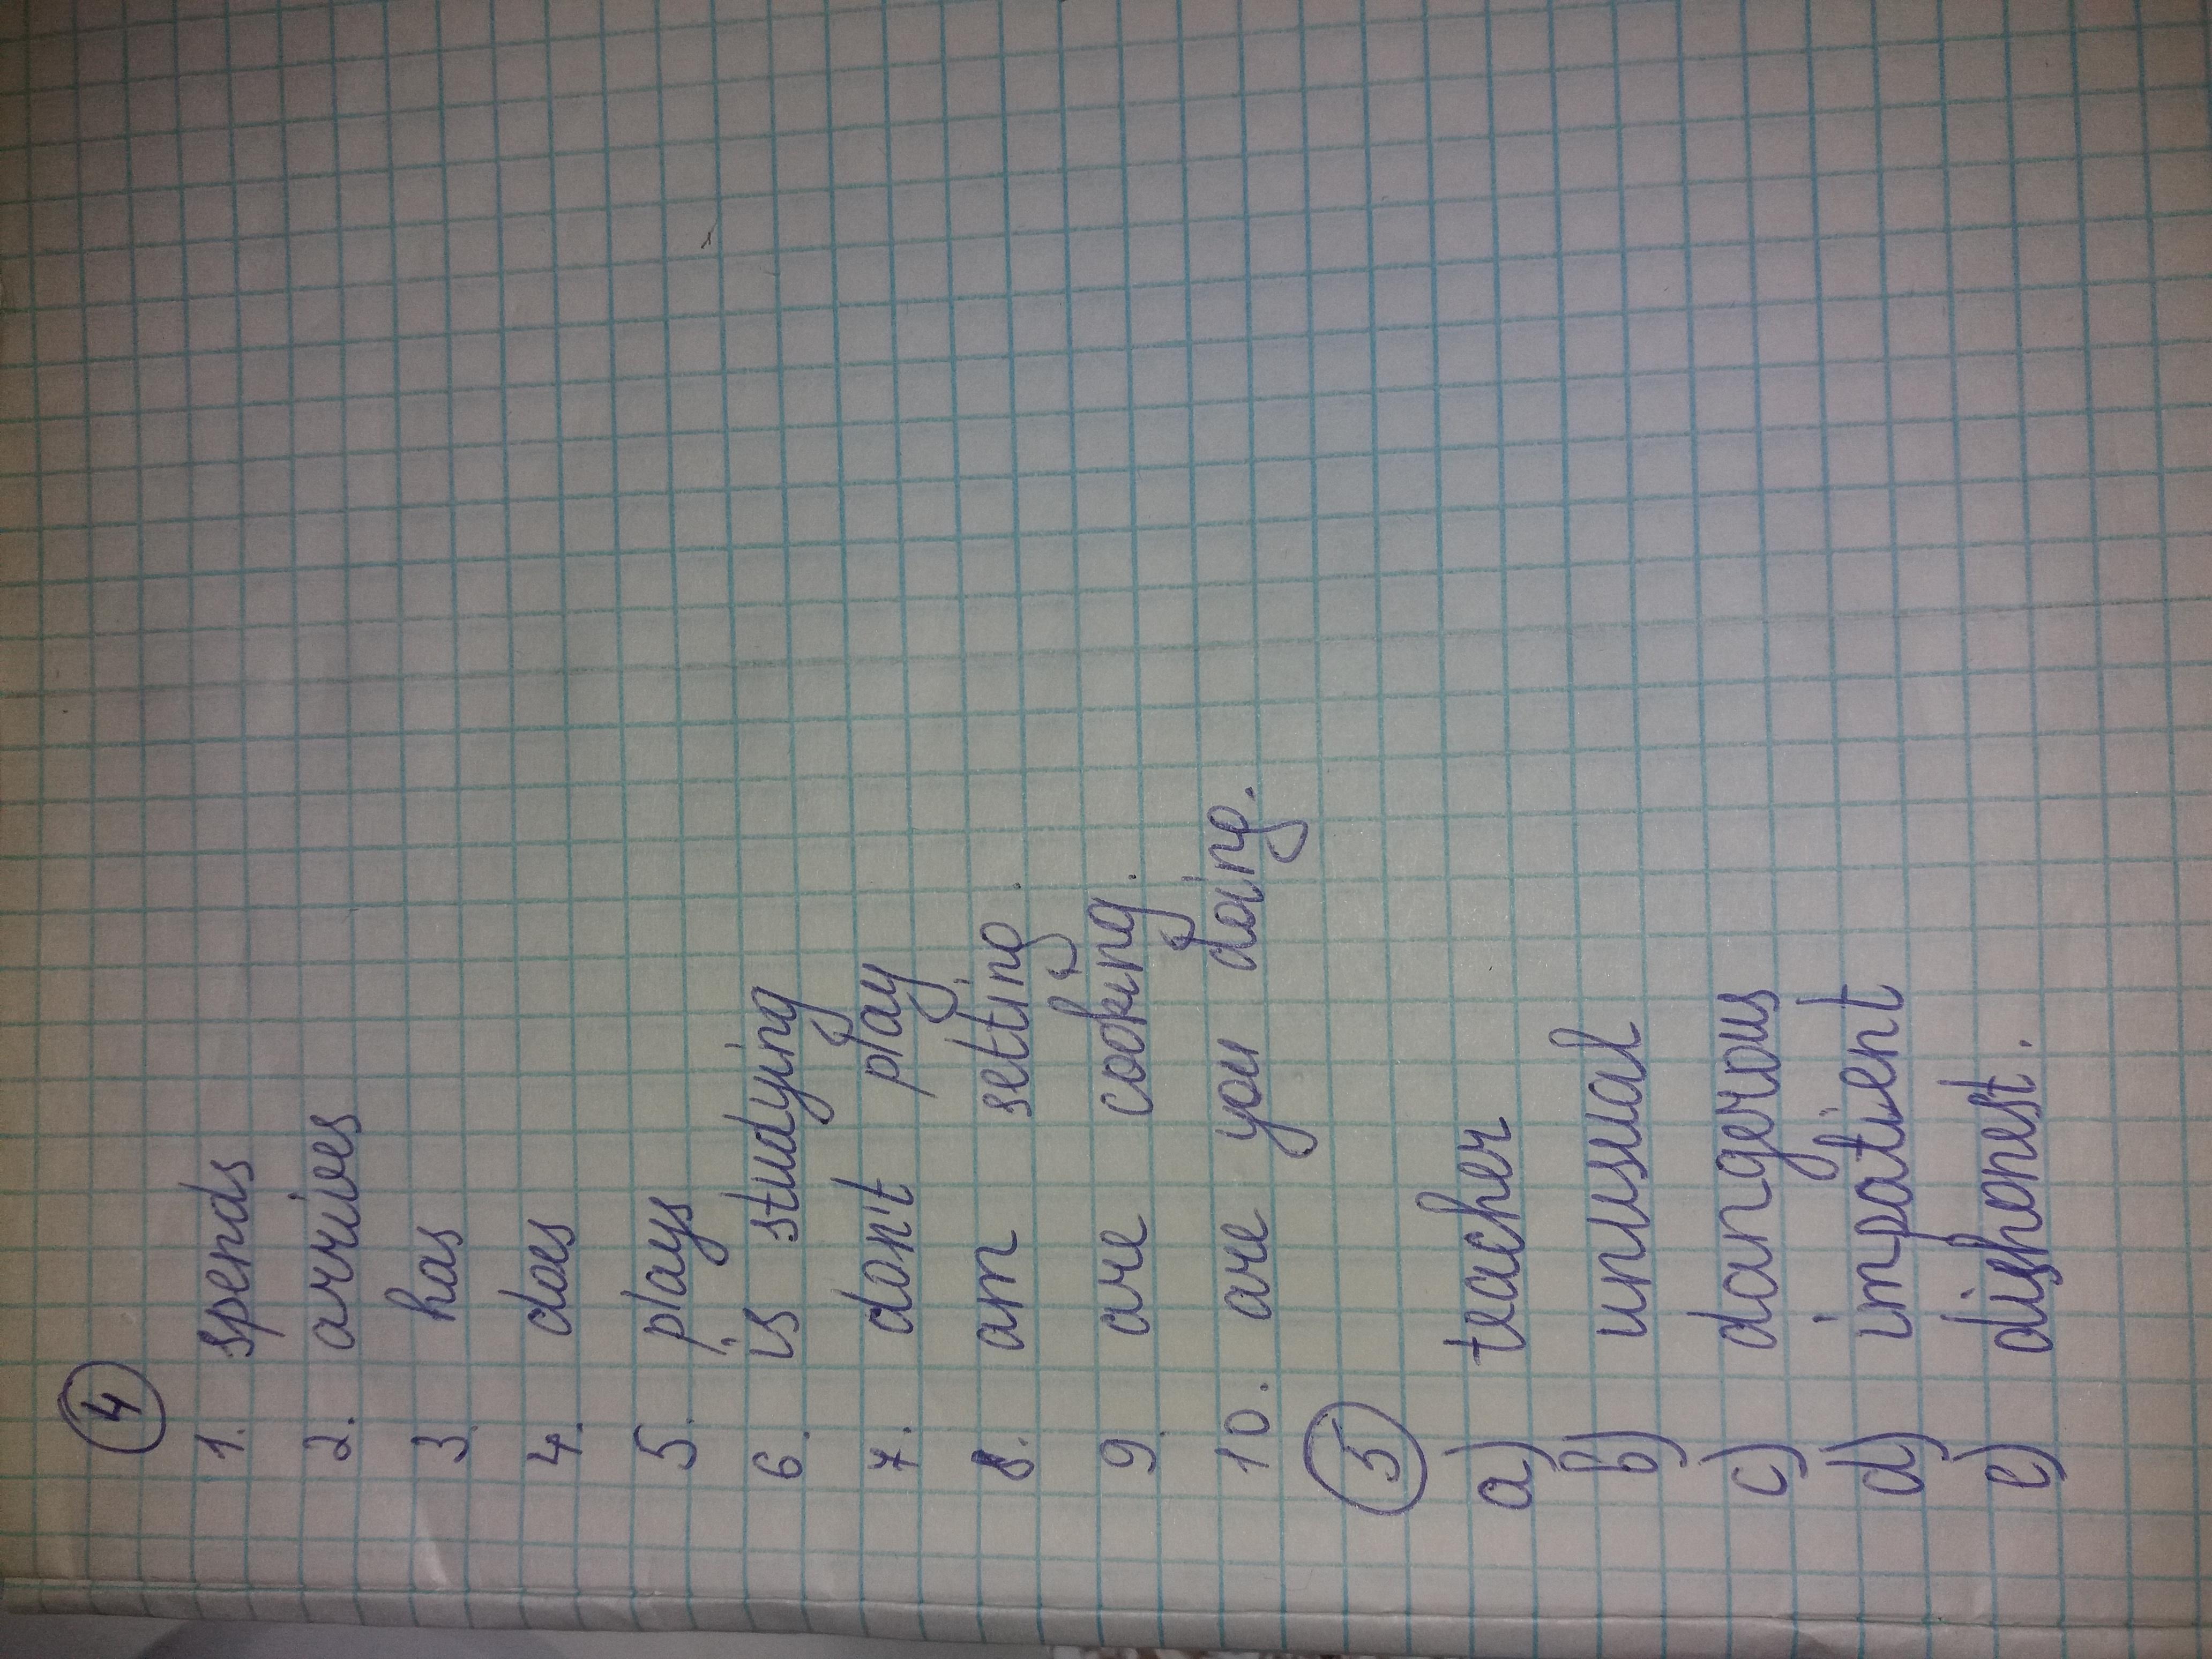 4
1. spends
2. arrives
3. has
4. does
5. plays
6. is studying
7. don't play
8. am setting.
9. are cooking.
10. are you doing.
5
a) teacher
b) unusual
c) dangerous
d) impatient
e) dishonest.